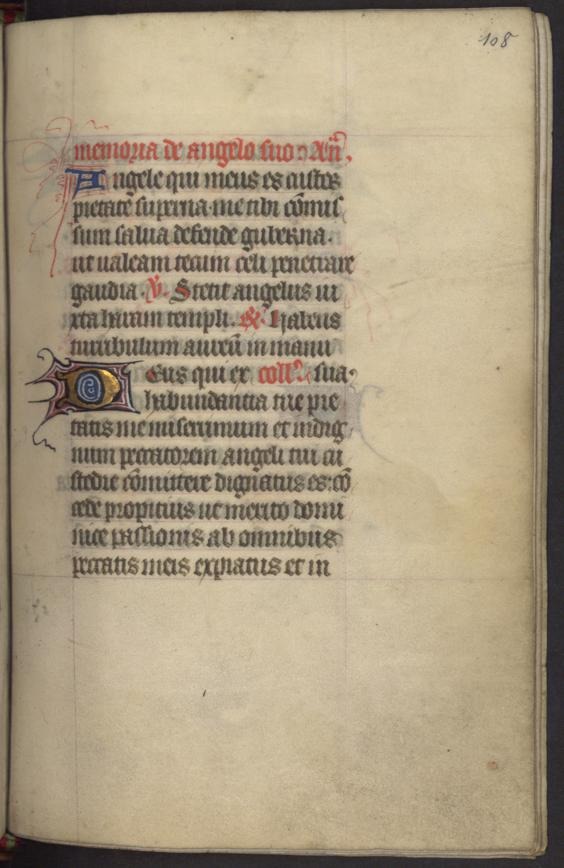 108
memoria de angelo suo añ,
Angele qui meus es custos
pietate superna· me tibi cōmis
sum salua defende guberna·
ut ualeam tecum celi penetrare
gaudia · ℣. Stetit angelus iu
xta haram templi. ℟. Habens
turribulum aureū in manu
Deus qui ex coll'. sua·
habundantia tue pie
tatis me miserimum et indig
num peccatorem angeli tui cu
stodie cōmittere dignatus es: cō
cede propitius ut merito domi
nice passionis ab omnibus
peccatis meis expiatus et in